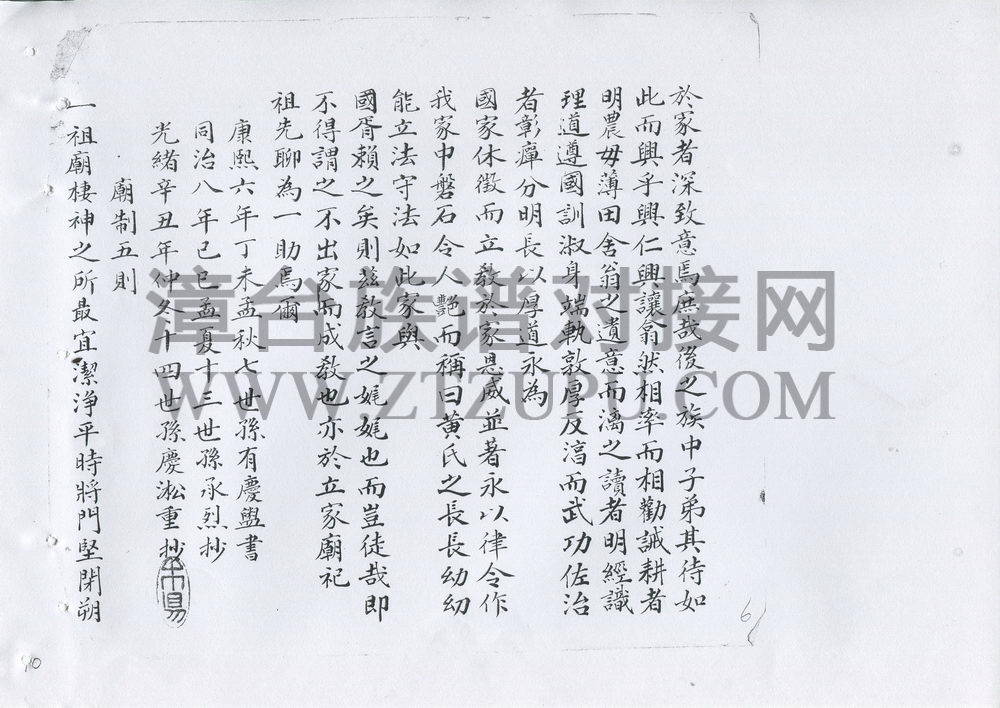 於家者深致意焉庶哉後之族中子弟其待如
此而興乎興仁興讓翕然相率而相勸誡耕者
明農毋薄田舍翁之遺意而漓之讀者明經識
理道遵國訓淑身端軌敦厚反漓而武功佐治
者彰癉分明長以厚道永為
國家休徵而立教於家恩威並著永以律令作
我家中磐石令人艷而稱曰黃氏之長長幼幼
能立法守法如此家與
國胥賴之矣則茲教言之娓娓也而豈徒哉即
不得謂之不出家而成教也亦於立家廟祀
祖先聊為一助焉爾
康熙六年丁未孟秋七世孫有慶盥書
同治八年己巳孟夏十三世孫承烈抄
光緒辛丑年仲冬十四世孫慶淞重抄
廟制五則
一祖廟棲神之所最宜潔淨平時將門堅閉朔
漳台族谱对接网
WWW.ZTZUPU.COM
6
10